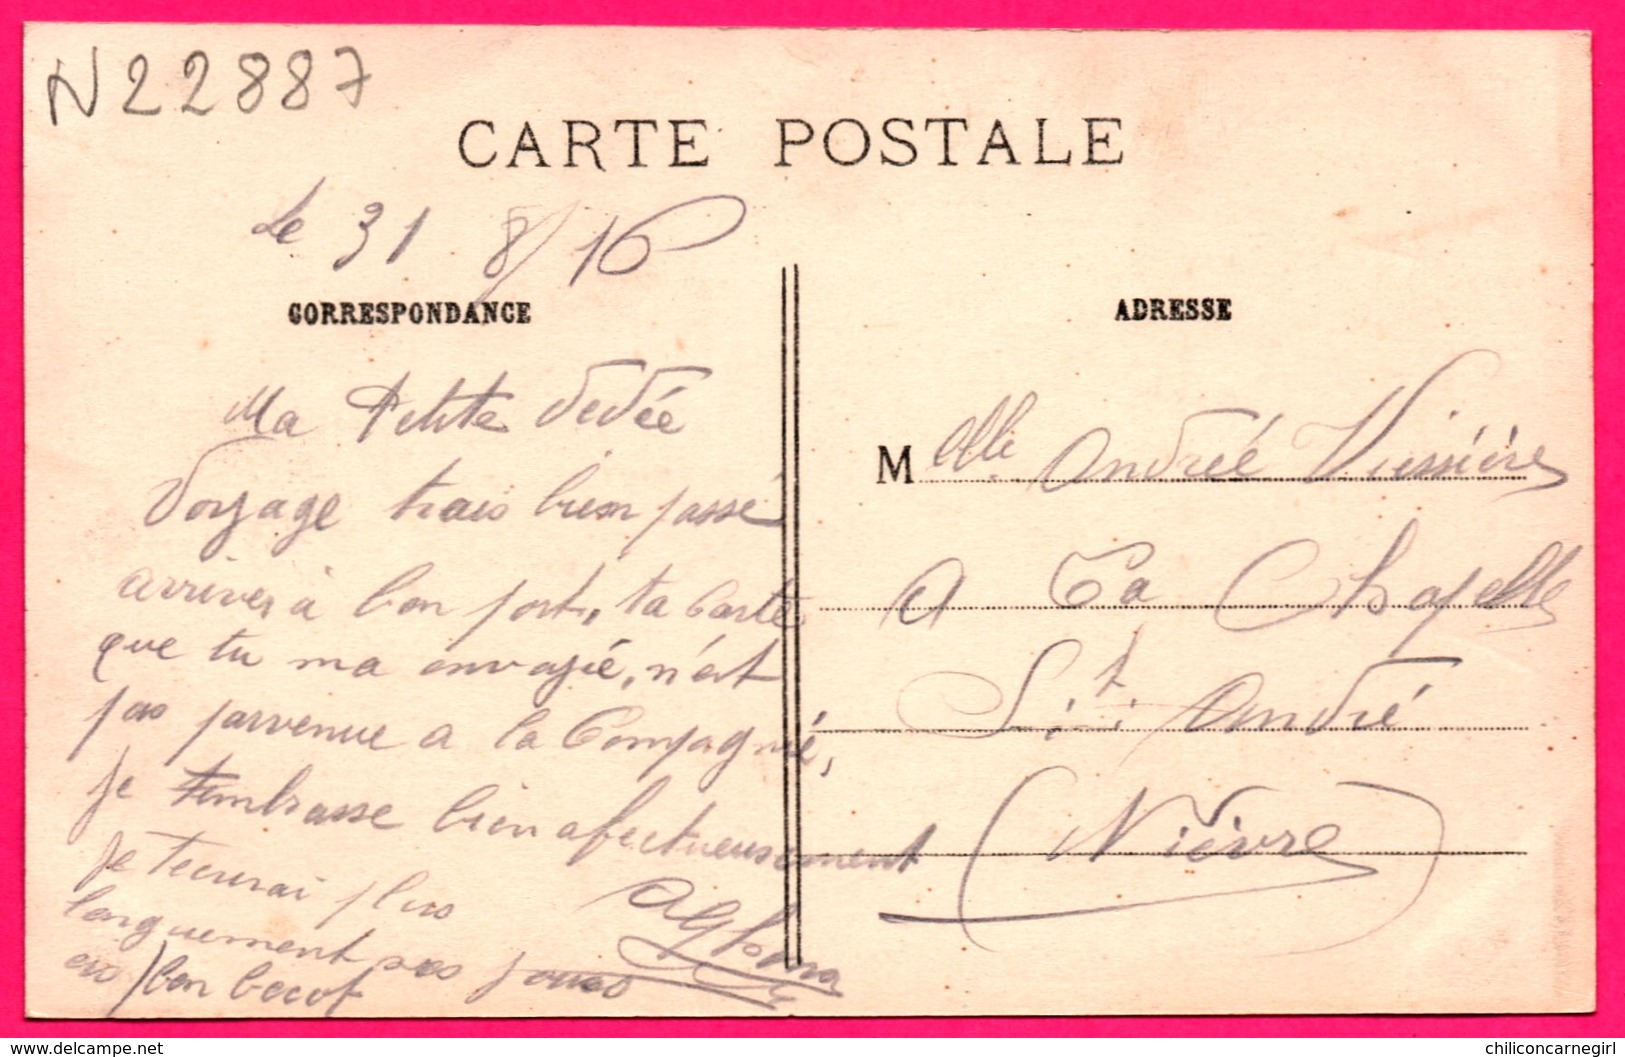 N22887
CARTE POSTALE
Le 31 8/16
CORRESPONDANCE
Ma Petite Dédée
Voyage trais bien passé
arriver à bon port, ta carte
que tu ma envoyié, n'est
pas parvenue a la Compagnie,
je tembrasse bien afectueusement
je tecurai plus
longuement ses jours
un bon becot
ADRESSE
Melle Andrée Vussière
A La Chapelle
St. André
(Nièvre)
delcampe.net
chiliconcarnegirl